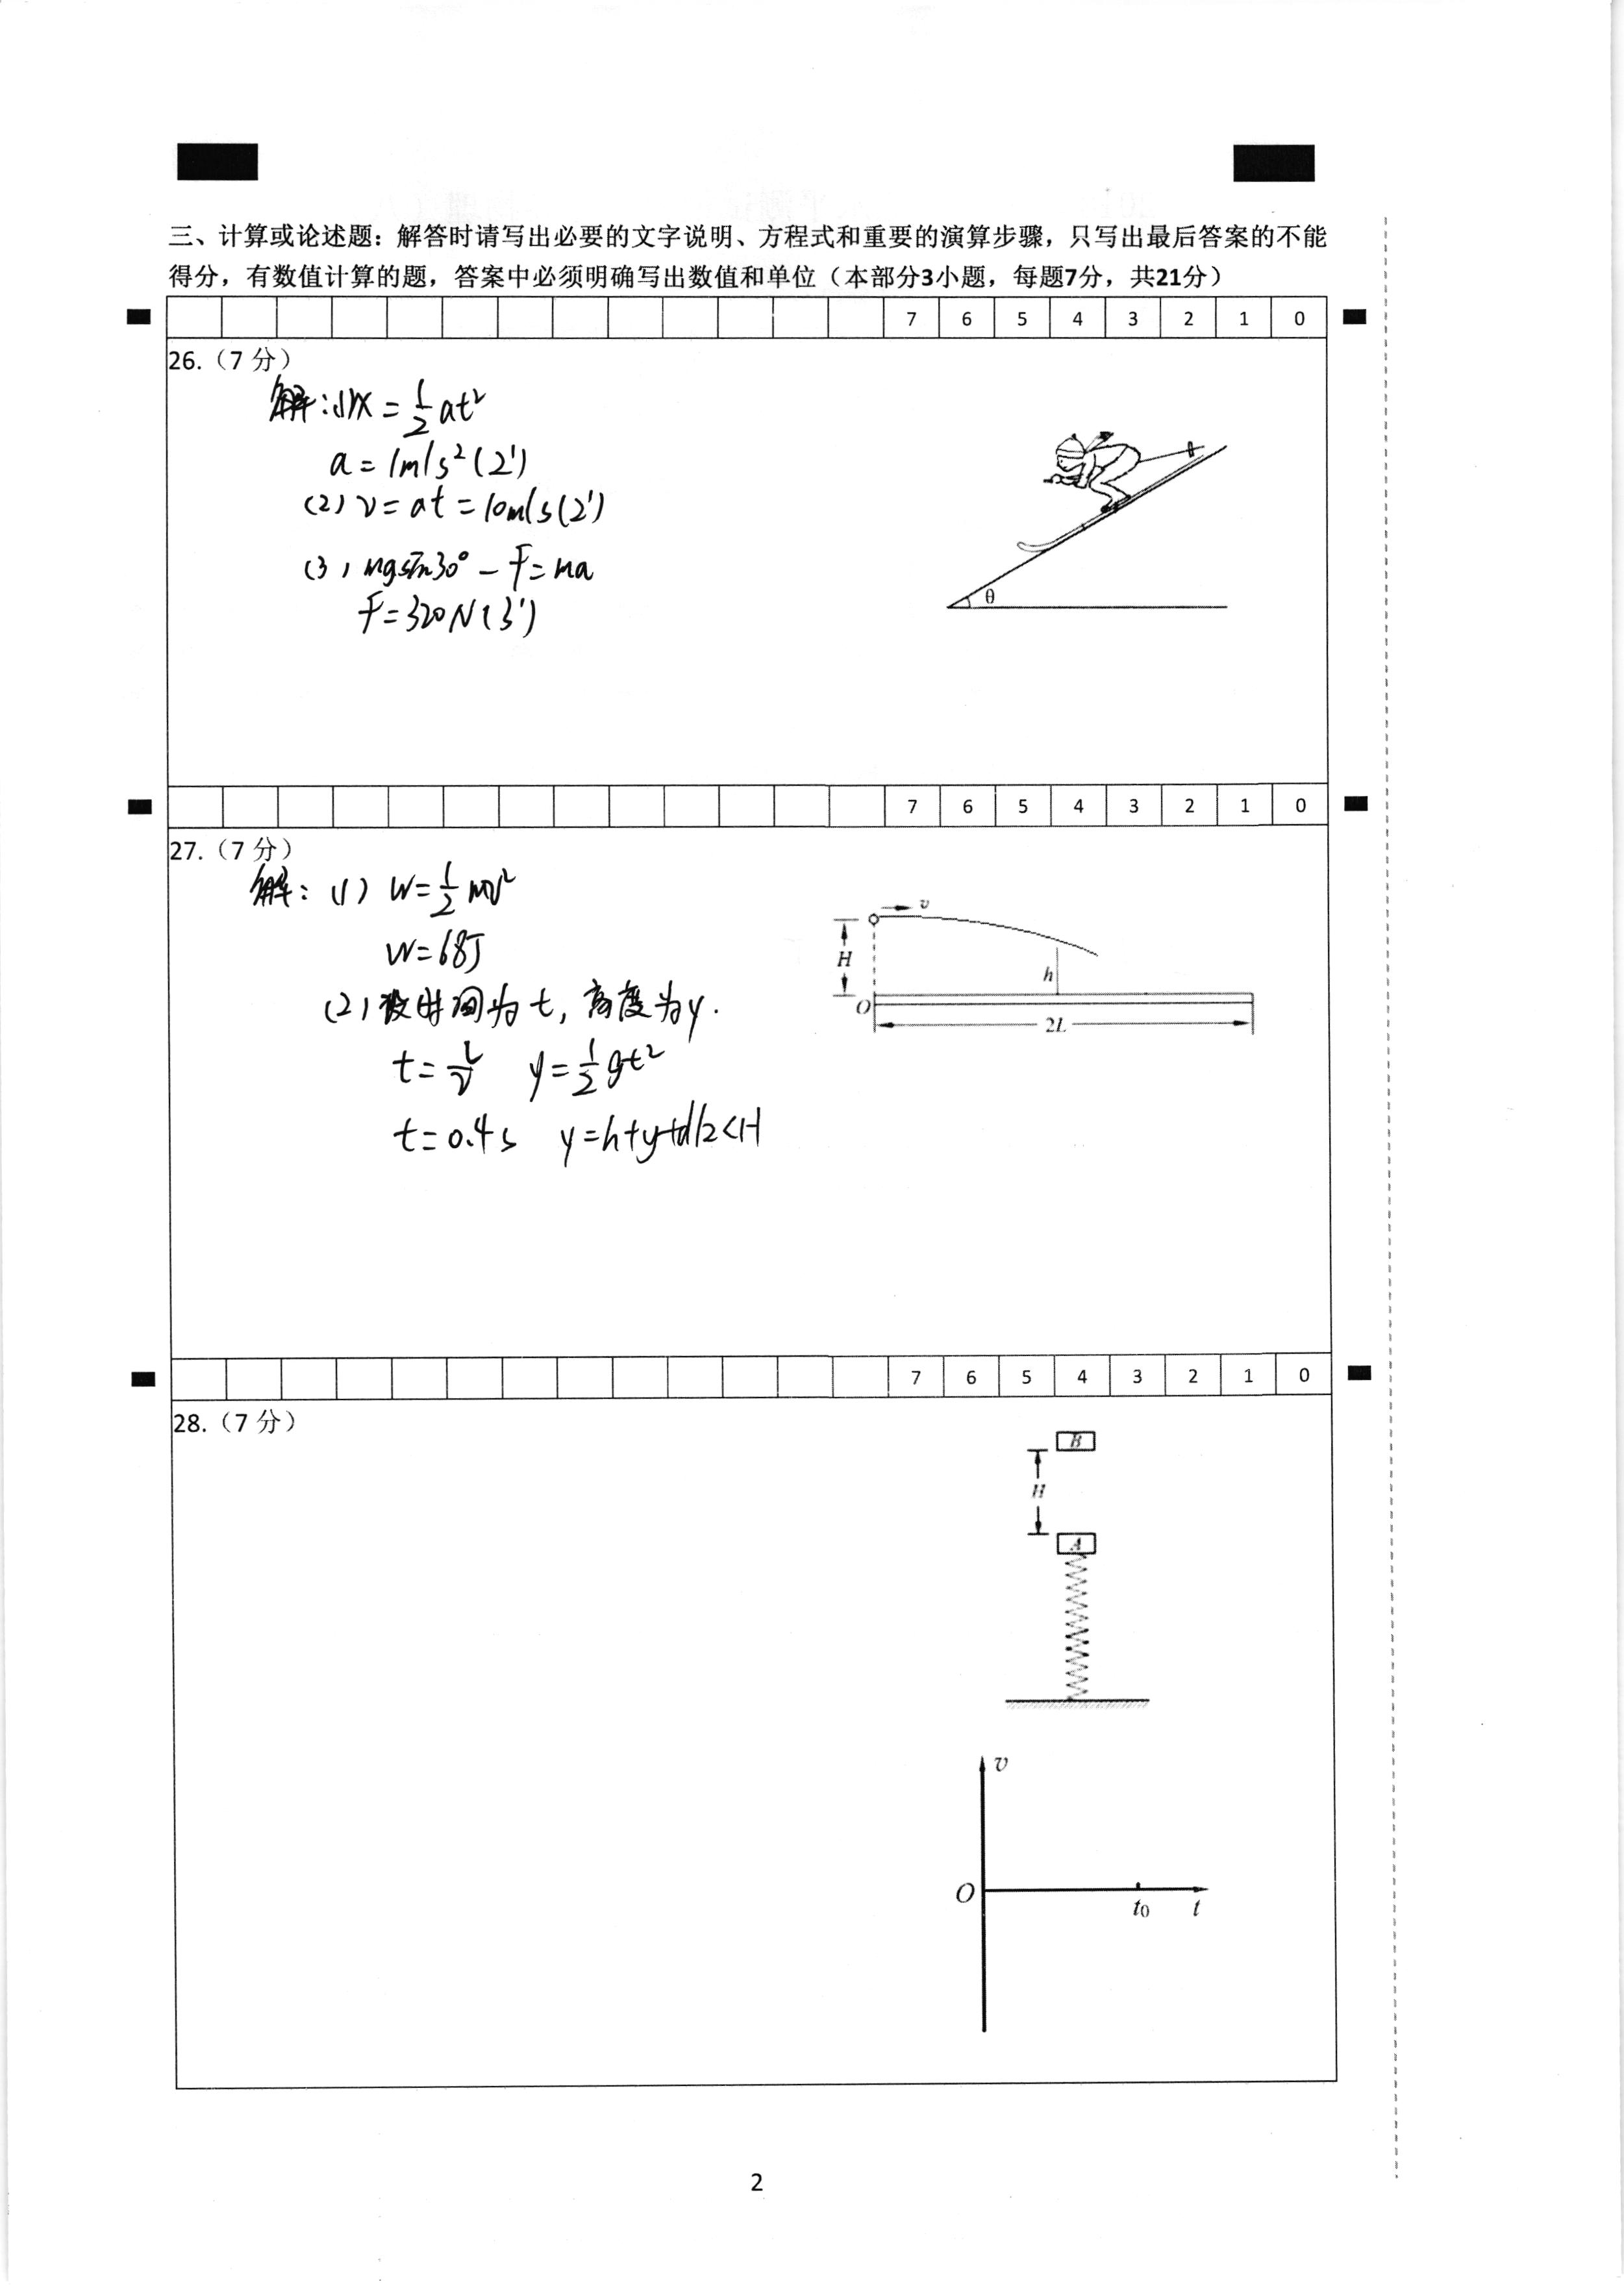 三、计算或论述题：解答时请写出必要的文字说明、方程式和重要的演算步骤，只写出最后答案的不能
得分，有数值计算的题，答案中必须明确写出数值和单位（本部分3小题，每题7分，共21分）
7 6 5 4 3 2 1 0
26.（7 分）
解：(1) x = 1/2 at²
a = 1m/s² (2')
(2) v = at = 10m/s (2')
(3) mgsin30° - f = ma
f = 320N (3')
θ
7 6 5 4 3 2 1 0
27.（7 分）
解：(1) W = 1/2 mv²
W = 68J
(2) 设时间为 t，高度为y.
t = L/v y = 1/2 gt²
t = 0.4s y = h+y+d/2<H
v
H
h
O
2L
7 6 5 4 3 2 1 0
28.（7 分）
B
H
A
v
O
t₀ t
2